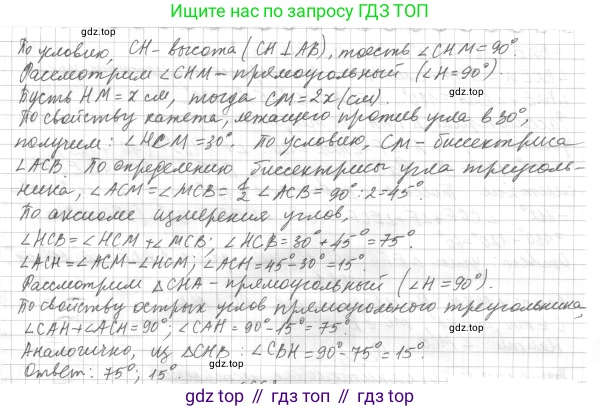 Ищите нас по запросу ГДЗ ТОП
gdz.top
По условию, CH - высота (CH ⊥ AB), тоесть ∠CHM = 90°.
Рассмотрим ∠CHM - прямоугольный (∠H = 90°).
Пусть HM = x см, тогда CM = 2x (см).
По свойству катета, лежащего против угла в 30°,
получим: ∠HCM = 30°. По условию, CM - биссектриса
∠ACB. По определению биссектрисы угла треуголь-
ника, ∠ACM = ∠MCB = 1/2 ∠ACB = 90° : 2 = 45°.
По аксиоме измерения углов,
∠HCB = ∠HCM + ∠MCB; ∠HCB = 30° + 45° = 75°.
∠ACH = ∠ACM - ∠HCM; ∠ACH = 45° - 30° = 15°.
Рассмотрим △CHA - прямоугольный (∠H = 90°).
По свойству острых углов прямоугольного треугольника,
∠CAH + ∠ACH = 90°; ∠CAH = 90° - 15° = 75°.
Аналогично, из △CHB: ∠CBH = 90° - 75° = 15°.
Ответ: 75°; 15°.
gdz top
gdz top
gdz top
gdz top
gdz.top // gdz.top // gdz.top // gdz.top